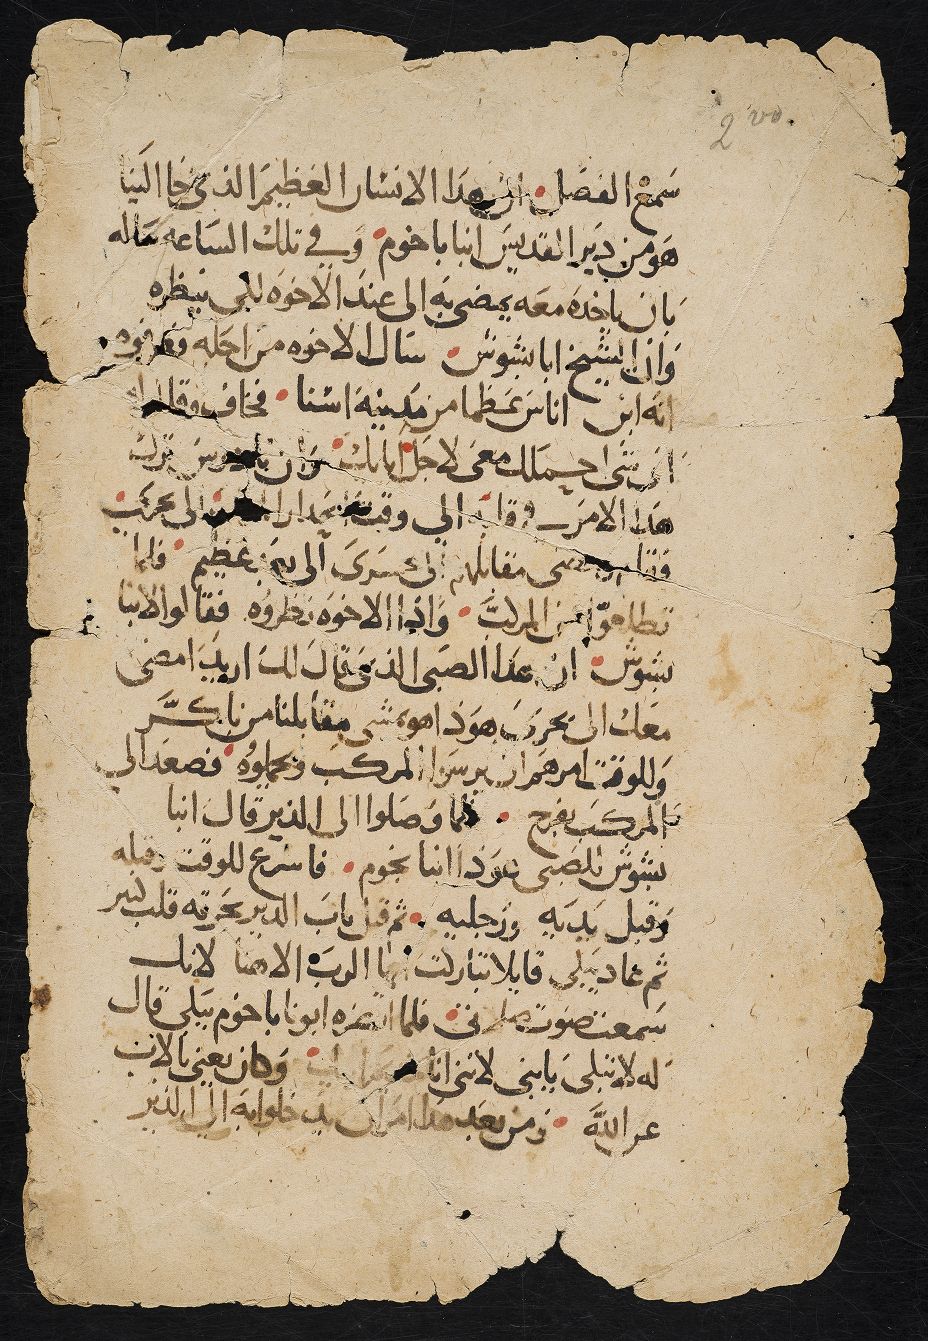 2 ٢٧٥
سمع الفضل ان هدا الانسان العظيم الذي جا الينا
هو من دير القديس انبا باخوم وفي تلك الساعه ساله
بان ياخده معه يمضي به الى عند الاخوه لكي ينظره
وان الشيخ ابا بشوش سال الاخوه من اجله وعرفوه
انه ابن اناس عظما من مدينة اسنا فخاف وقال
اني شي احملك معي لاجل ابايك وان ترك
هدا الامر وقال الي وقت الى بحرى
مقابلهم الى عظيم فلما
تطلعوا من المركب واذا الاخوه نظروه فقالوا لانبا
بشوش ان هدا الصبي الذي قال لك اريد امضي
معك الى بحري هوذا هو يمشي مقابلنا من باكر
وللوقت امرهم ان يرسوا المركب ويحملوه فصعد الي
المركب بفرح فلما وصلوا الى الدير قال انبا
بشوش للصبي هوذا انبا بخوم فاسرع للوقت وقبله
وقبل يديه ورجليه ثم قبل باب الدير بحرقة قلب كبير
ثم عاد يبكي قايلا تباركت ايها الرب الاهنا لانك
سمعت صوت فلما ابصره ابونا باخوم يبكي قال
له لا تبكي يا بني لانني انا وكان يعني بالاب
عن الله ومن بعد هدا امر ان يدخلوا به الى الدير